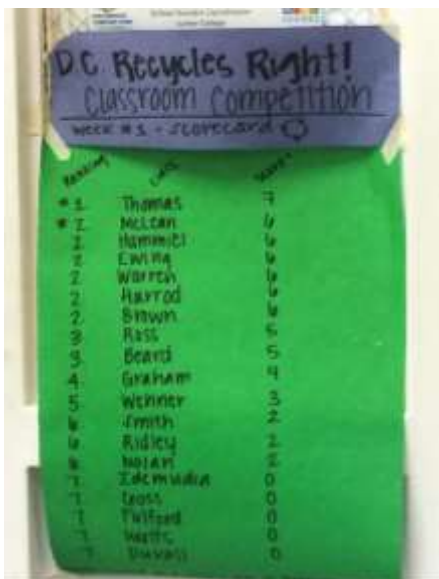 D.C. Recycles Right!
Classroom Competition
Week #1 - Scorecard
Ranking Class Score
*1 Thomas 7
*2 McLean 6
2 Hammiel 6
2 Ewing 6
2 Warren 6
2 Harrod 6
2 Brown 6
3 Ross 5
3 Beard 5
4 Graham 4
5 Wehner 3
6 Smith 2
6 Ridley 2
6 Nolan 2
7 Idemudia 0
7 0
7 Pulford 0
7 Watts 0
7 Duvall 0